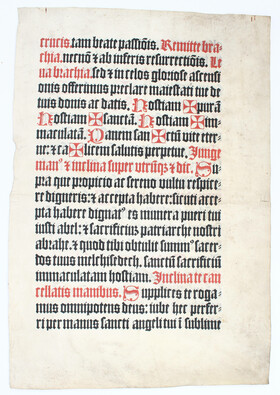 crucis. tam beate passiōis. Remitte bra⸗
chia. necnō & ab inferis resurrectiōis. Le
ua brachia. sed & in celos gloriose ascensi
onis offerimus preclare maiestati tue de
tuis donis ac datis. Hostiam ✠ purā
Hostiam ✠ sanctā. Hostiam ✠ im⸗
maculatā. Panem san ✠ ctū vite eter⸗
ne: & ca ✠ licem salutis perpetue. Junge
man⁹ & inclina super vtrūqȝ & dic. Su
pra que propicio ac sereno vultu respice
re digneris: & accepta habere: sicuti acce
pta habere dignat⁹ es munera pueri tui
iusti abel: & sacrificiū patriarche nostri
abrahe. & quod tibi obtulit summ⁹ sacer⸗
dos tuus melchisedech. sanctū sacrificiū
immaculatam hostiam. Inclina te can
cellatis manibus. Supplices te roga⸗
mus omnipotens deus: iube hec perfer⸗
ri per manus sancti angeli tui ī sublime